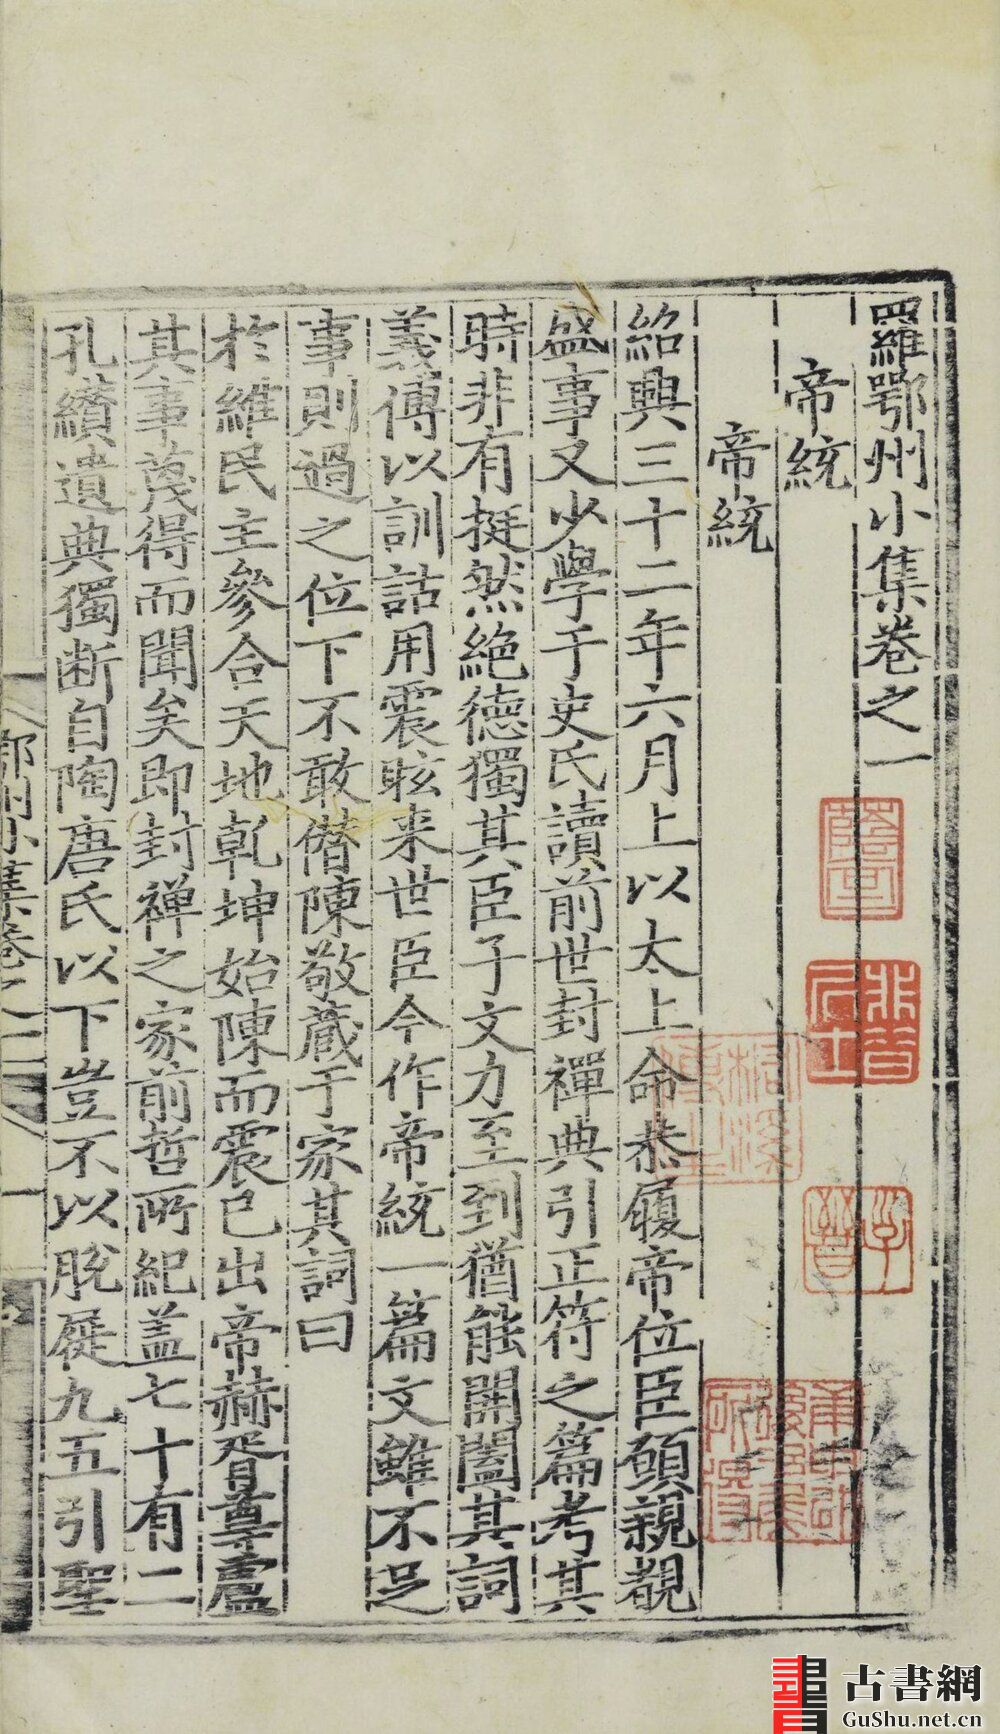 羅鄂州小集卷之一
帝統
帝統
紹興三十二年六月上以太上命恭履帝位臣碩親覩
盛事又少學于史氏讀前世封禪典引正符之篇考其
時非有挺然絕德獨其臣子文力至到猶能開闔其詞
義傅以訓詁用震眩来世臣今作帝統一篇文雖不足
事則過之位下不敢僭陳敬蔵于家其詞曰
於維民主參合天地乹坤始陳而震已出帝赫胥尊盧
其事蔑得而聞矣即封禅之家前哲所紀盖七十有二
孔纘遺典獨断自陶唐氏以下豈不以脫屣九五引聖
鄂州小集卷之一
一
古書網
GuShu.net.cn